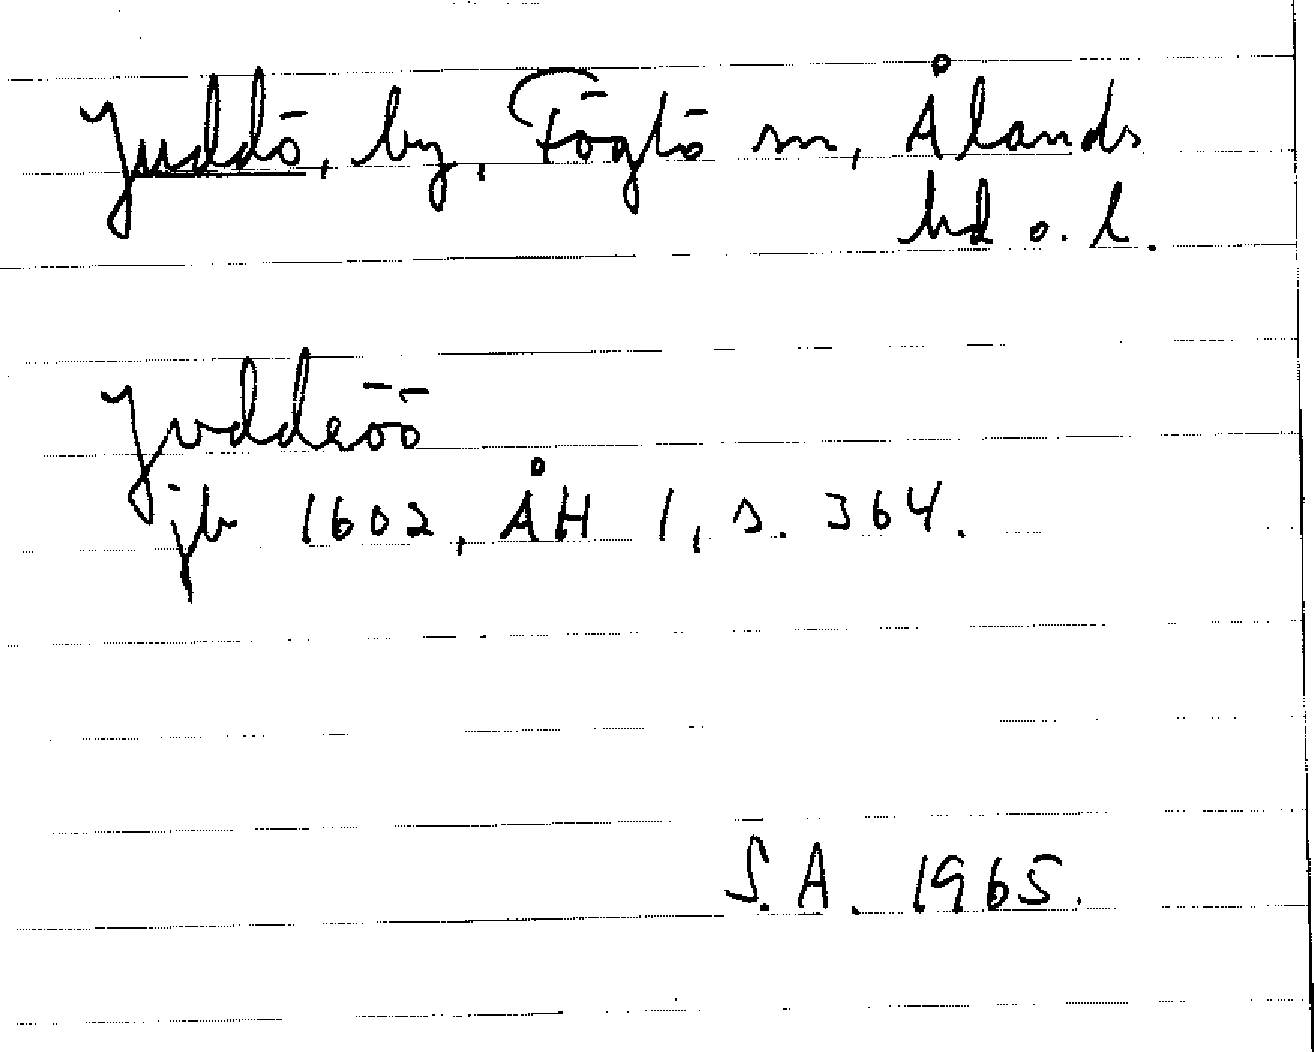 Juddö, by, Föglö sn, Ålands
hd o. l.
Jvddeöö
jb 1602, ÅH 1, s. 364.
S.A. 1965.